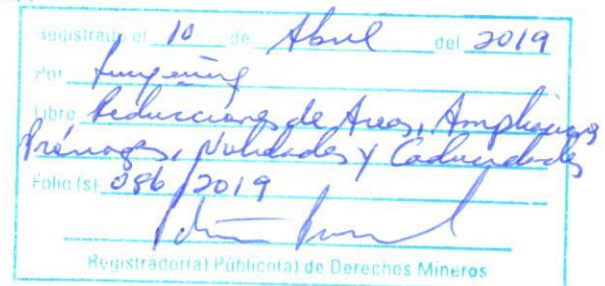 Registrado el 10 de Abril del 2019
Por
Libro Reducciones de Areas, Ampliaciones
Prórrogas, Nulidades y Caducidades
Folio (s) 086/2019
Registrador(a) Público(a) de Derechos Mineros